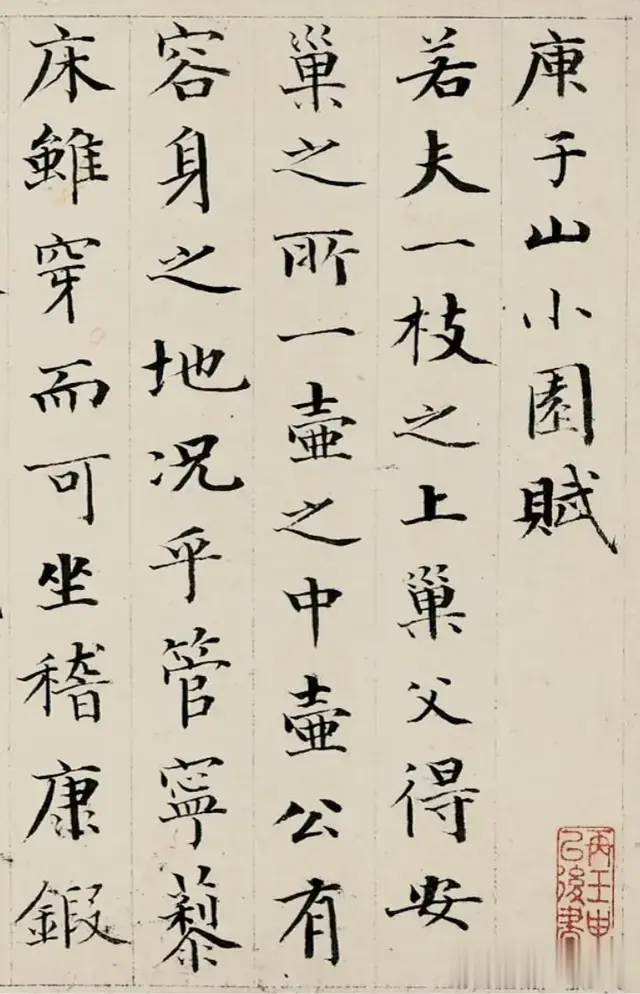 庾子山小園賦
若夫一枝之上巢父得安
巢之所一壺之中壺公有
容身之地况乎管寧藜
床雖穿而可坐稽康鍜